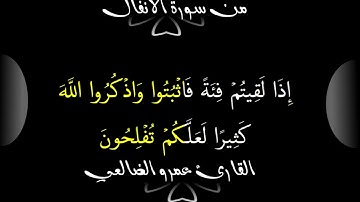 من سورة الانفال
إِذَا لَقِيتُمْ فِئَةً فَاثْبُتُوا وَاذْكُرُوا اللَّهَ
كَثِيرًا لَعَلَّكُمْ تُفْلِحُونَ
القارئ عمرو الضالعي